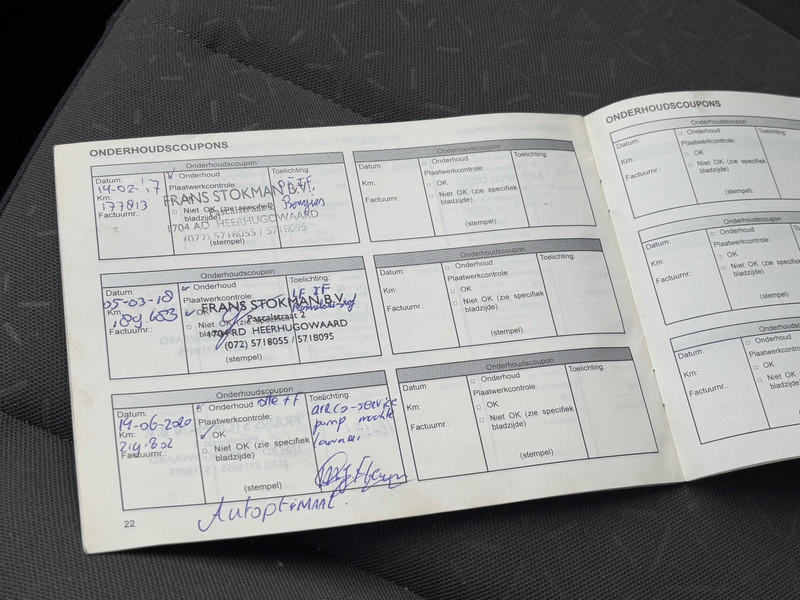 ONDERHOUDSCOUPONS
Onderhoudscoupon
Datum:
14-02-17
Km:
177813
Factuurnr.:
Onderhoud
Plaatwerkcontrole:
Niet OK (zie specifiek bladzijde)
(stempel)
Toelichting:
Bougies
FRANS STOKMAN B.V.
Pascalstraat 2
1704 RD HEERHUGOWAARD
(072) 5718055 / 5718095
Onderhoudscoupon
Datum:
Km:
Factuurnr.:
Onderhoud
Plaatwerkcontrole:
OK
Niet OK (zie specifiek bladzijde)
(stempel)
Toelichting:
Onderhoudscoupon
Datum:
25-03-18
Km:
189 653
Factuurnr.:
Onderhoud
Plaatwerkcontrole:
OK
Niet OK (zie specifiek bladzijde)
(stempel)
Toelichting:
FRANS STOKMAN B.V.
Pascalstraat 2
1704 RD HEERHUGOWAARD
(072) 5718055 / 5718095
Onderhoudscoupon
Datum:
Km:
Factuurnr.:
Onderhoud
Plaatwerkcontrole:
OK
Niet OK (zie specifiek bladzijde)
(stempel)
Toelichting:
Onderhoudscoupon
Datum:
14-06-2020
Km:
219.802
Factuurnr.:
Onderhoud
Plaatwerkcontrole:
OK
Niet OK (zie specifiek bladzijde)
(stempel)
Toelichting:
AIRCO-service
pomp
Autoptimaal.
Onderhoudscoupon
Datum:
Km:
Factuurnr.:
Onderhoud
Plaatwerkcontrole:
OK
Niet OK (zie specifiek bladzijde)
(stempel)
Toelichting:
22
ONDERHOUDSCOUPONS
Onderhoudscoupon
Datum:
Km:
Factuurnr.:
Onderhoud
Plaatwerkcontrole:
OK
Niet OK (zie specifiek bladzijde)
(stempel)
Toelichting:
Onderhoudscoupon
Datum:
Km:
Factuurnr.:
Onderhoud
Plaatwerkcontrole:
OK
Niet OK (zie specifiek bladzijde)
(stempel)
Datum:
Km:
Factuurnr.:
Onderhoud
OK
Niet OK (zie specifiek bladzijde)
(stempel)